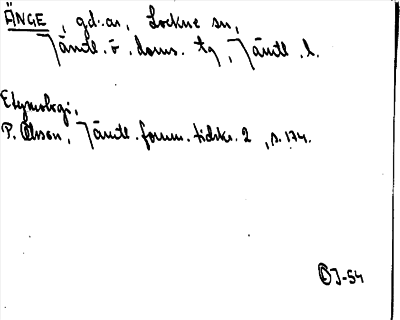 ÄNGE, gd.-ar, Lockne sn,
Jämtl. ö. doms. tg, Jämtl. l.
Etymologi,
P. Olsson, Jämtl. fornm. tidskr. 2, s. 174.
ÖJ-54